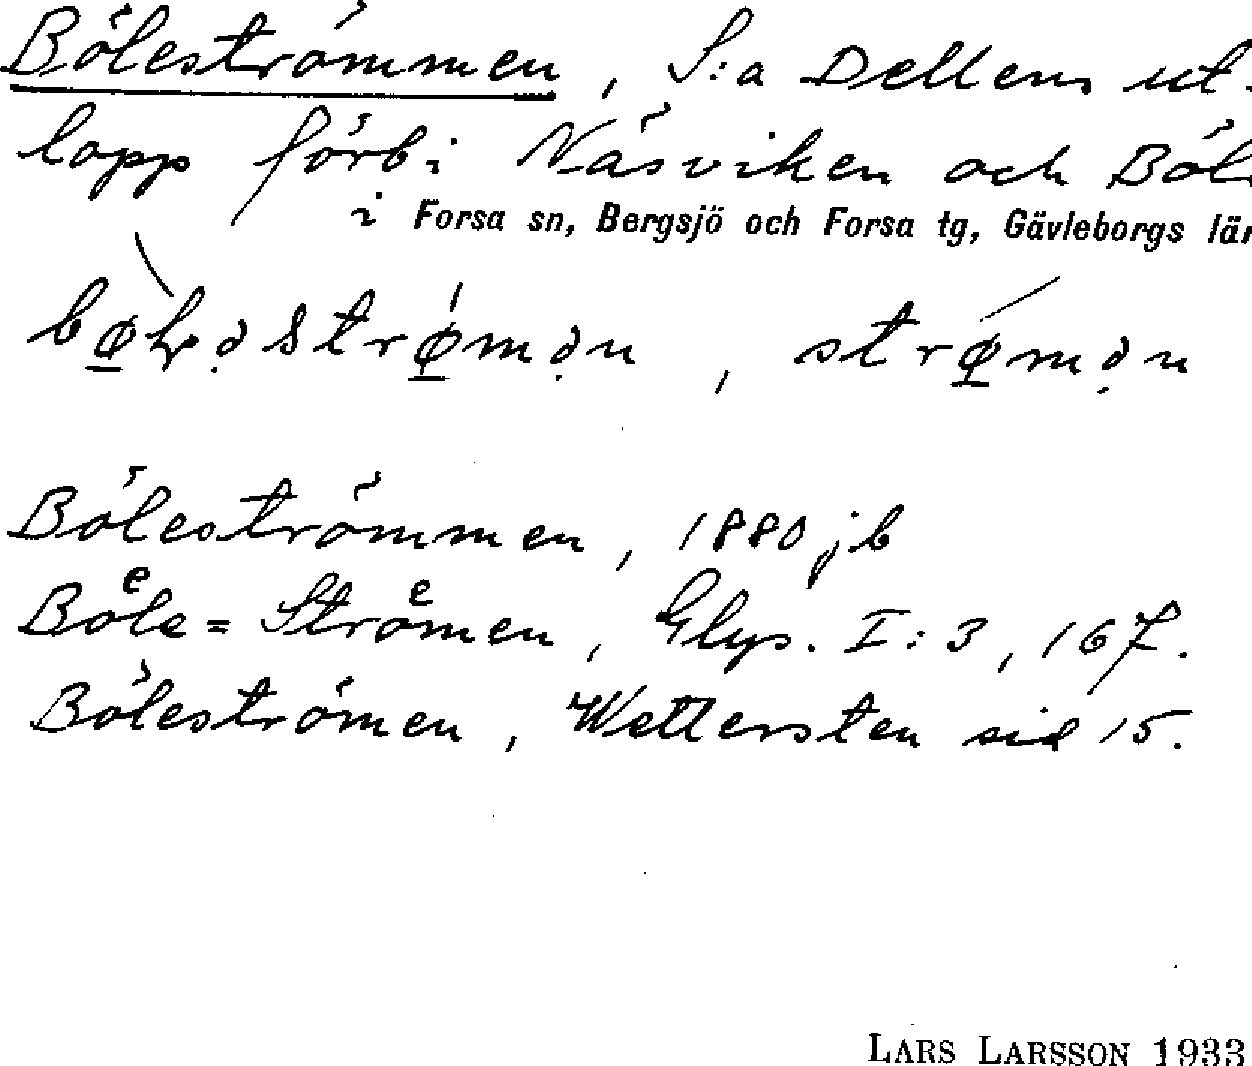 Böleströmmen, S:a Dellens ut-
lopp förbi Näsviken och Böl
i Forsa sn, Bergsjö och Forsa tg, Gävleborgs län
Böleströmmen, 1880 jb
Boͤle=Stroͤmen, Glys. I:3, 167.
Böleströmen, Wettersten sid 15.
LARS LARSSON 1933